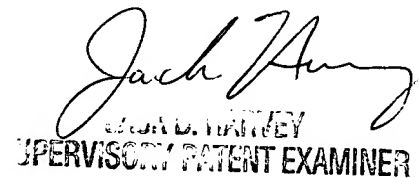 Jack Harvey
JACK B. HARVEY
UPERVISORY PATENT EXAMINER